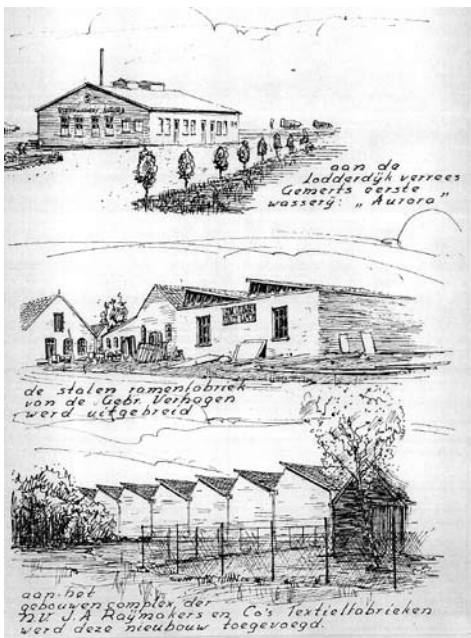 aan de
Lodderdijk verrees
Gemerts eerste
wasserij: „Aurora"
de stalen ramenfabriek
van de Gebr. Verhagen
werd uitgebreid
aan het
gebouwen complex der
N.V. J. A Raymakers en Co's Textielfabrieken
werd deze nieubouw toegevoegd.